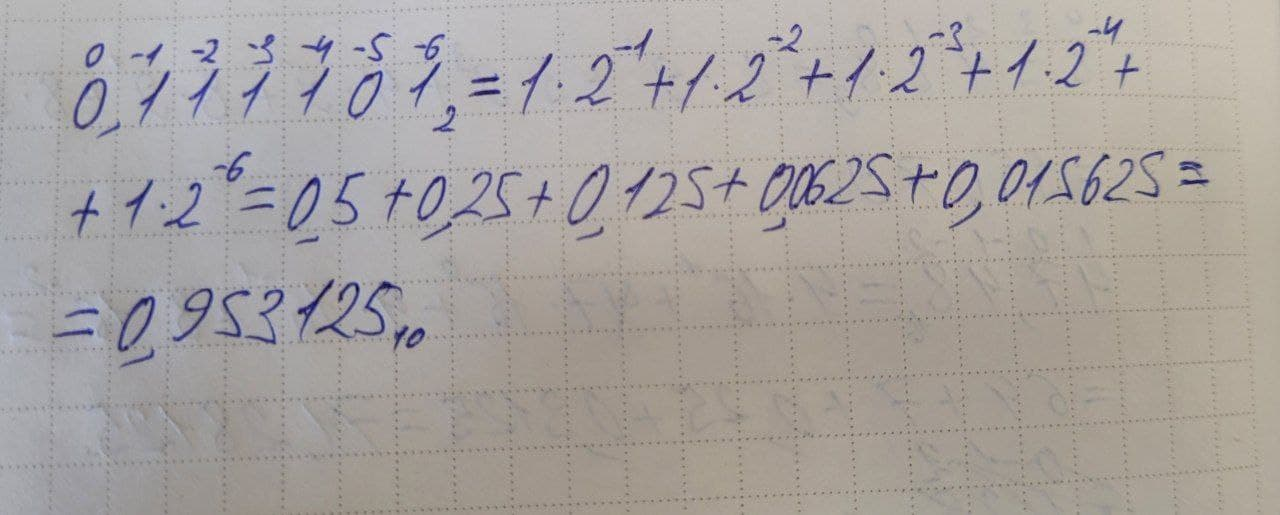 0 -1 -2 -3 -4 -5 -6
0,111101₂ = 1·2⁻¹ + 1·2⁻² + 1·2⁻³ + 1·2⁻⁴ +
+ 1·2⁻⁶ = 0,5 + 0,25 + 0,125 + 0,0625 + 0,015625 =
= 0,953125₁₀